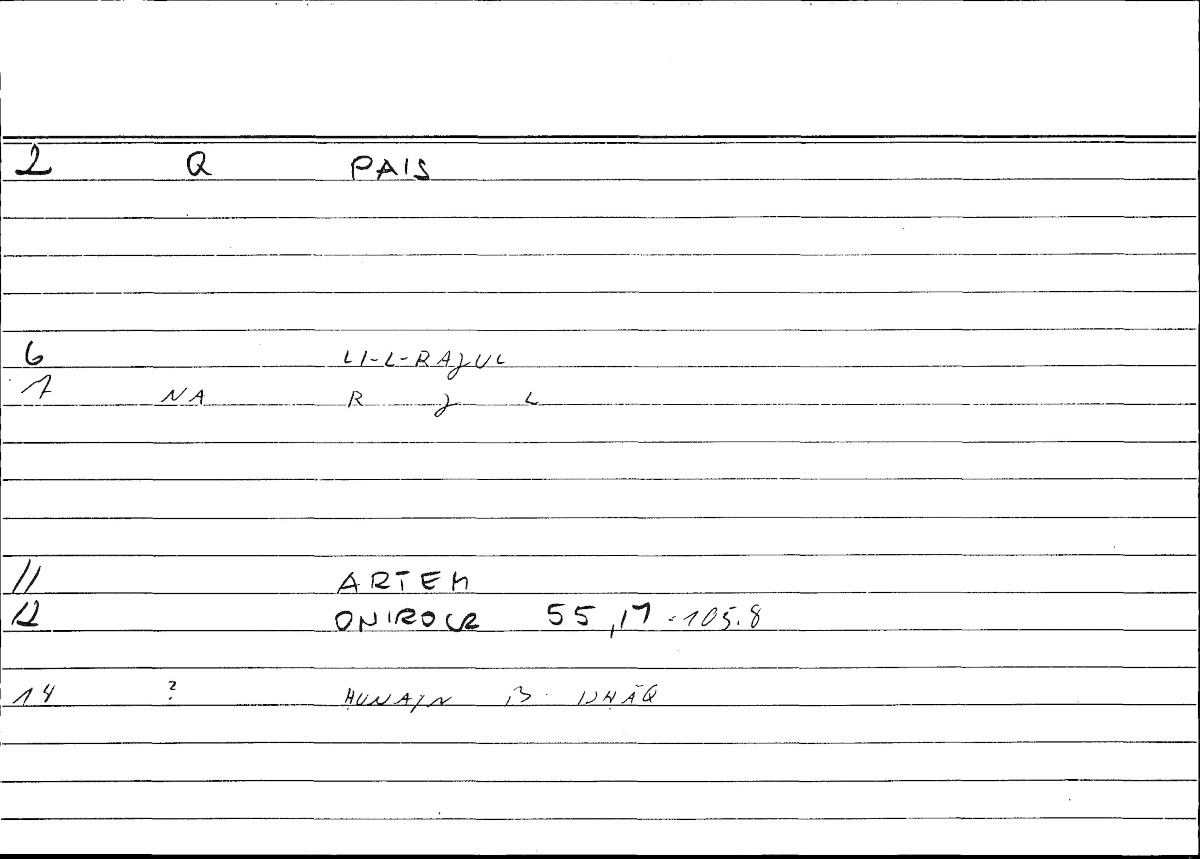 2 Q PAIS
6 LI-L-RAǧUL
7 NA R ǧ L
11 ARTEM
12 ONIROCR 55,17-105.8
14 ? ḤUNAYN B. ISḤĀQ